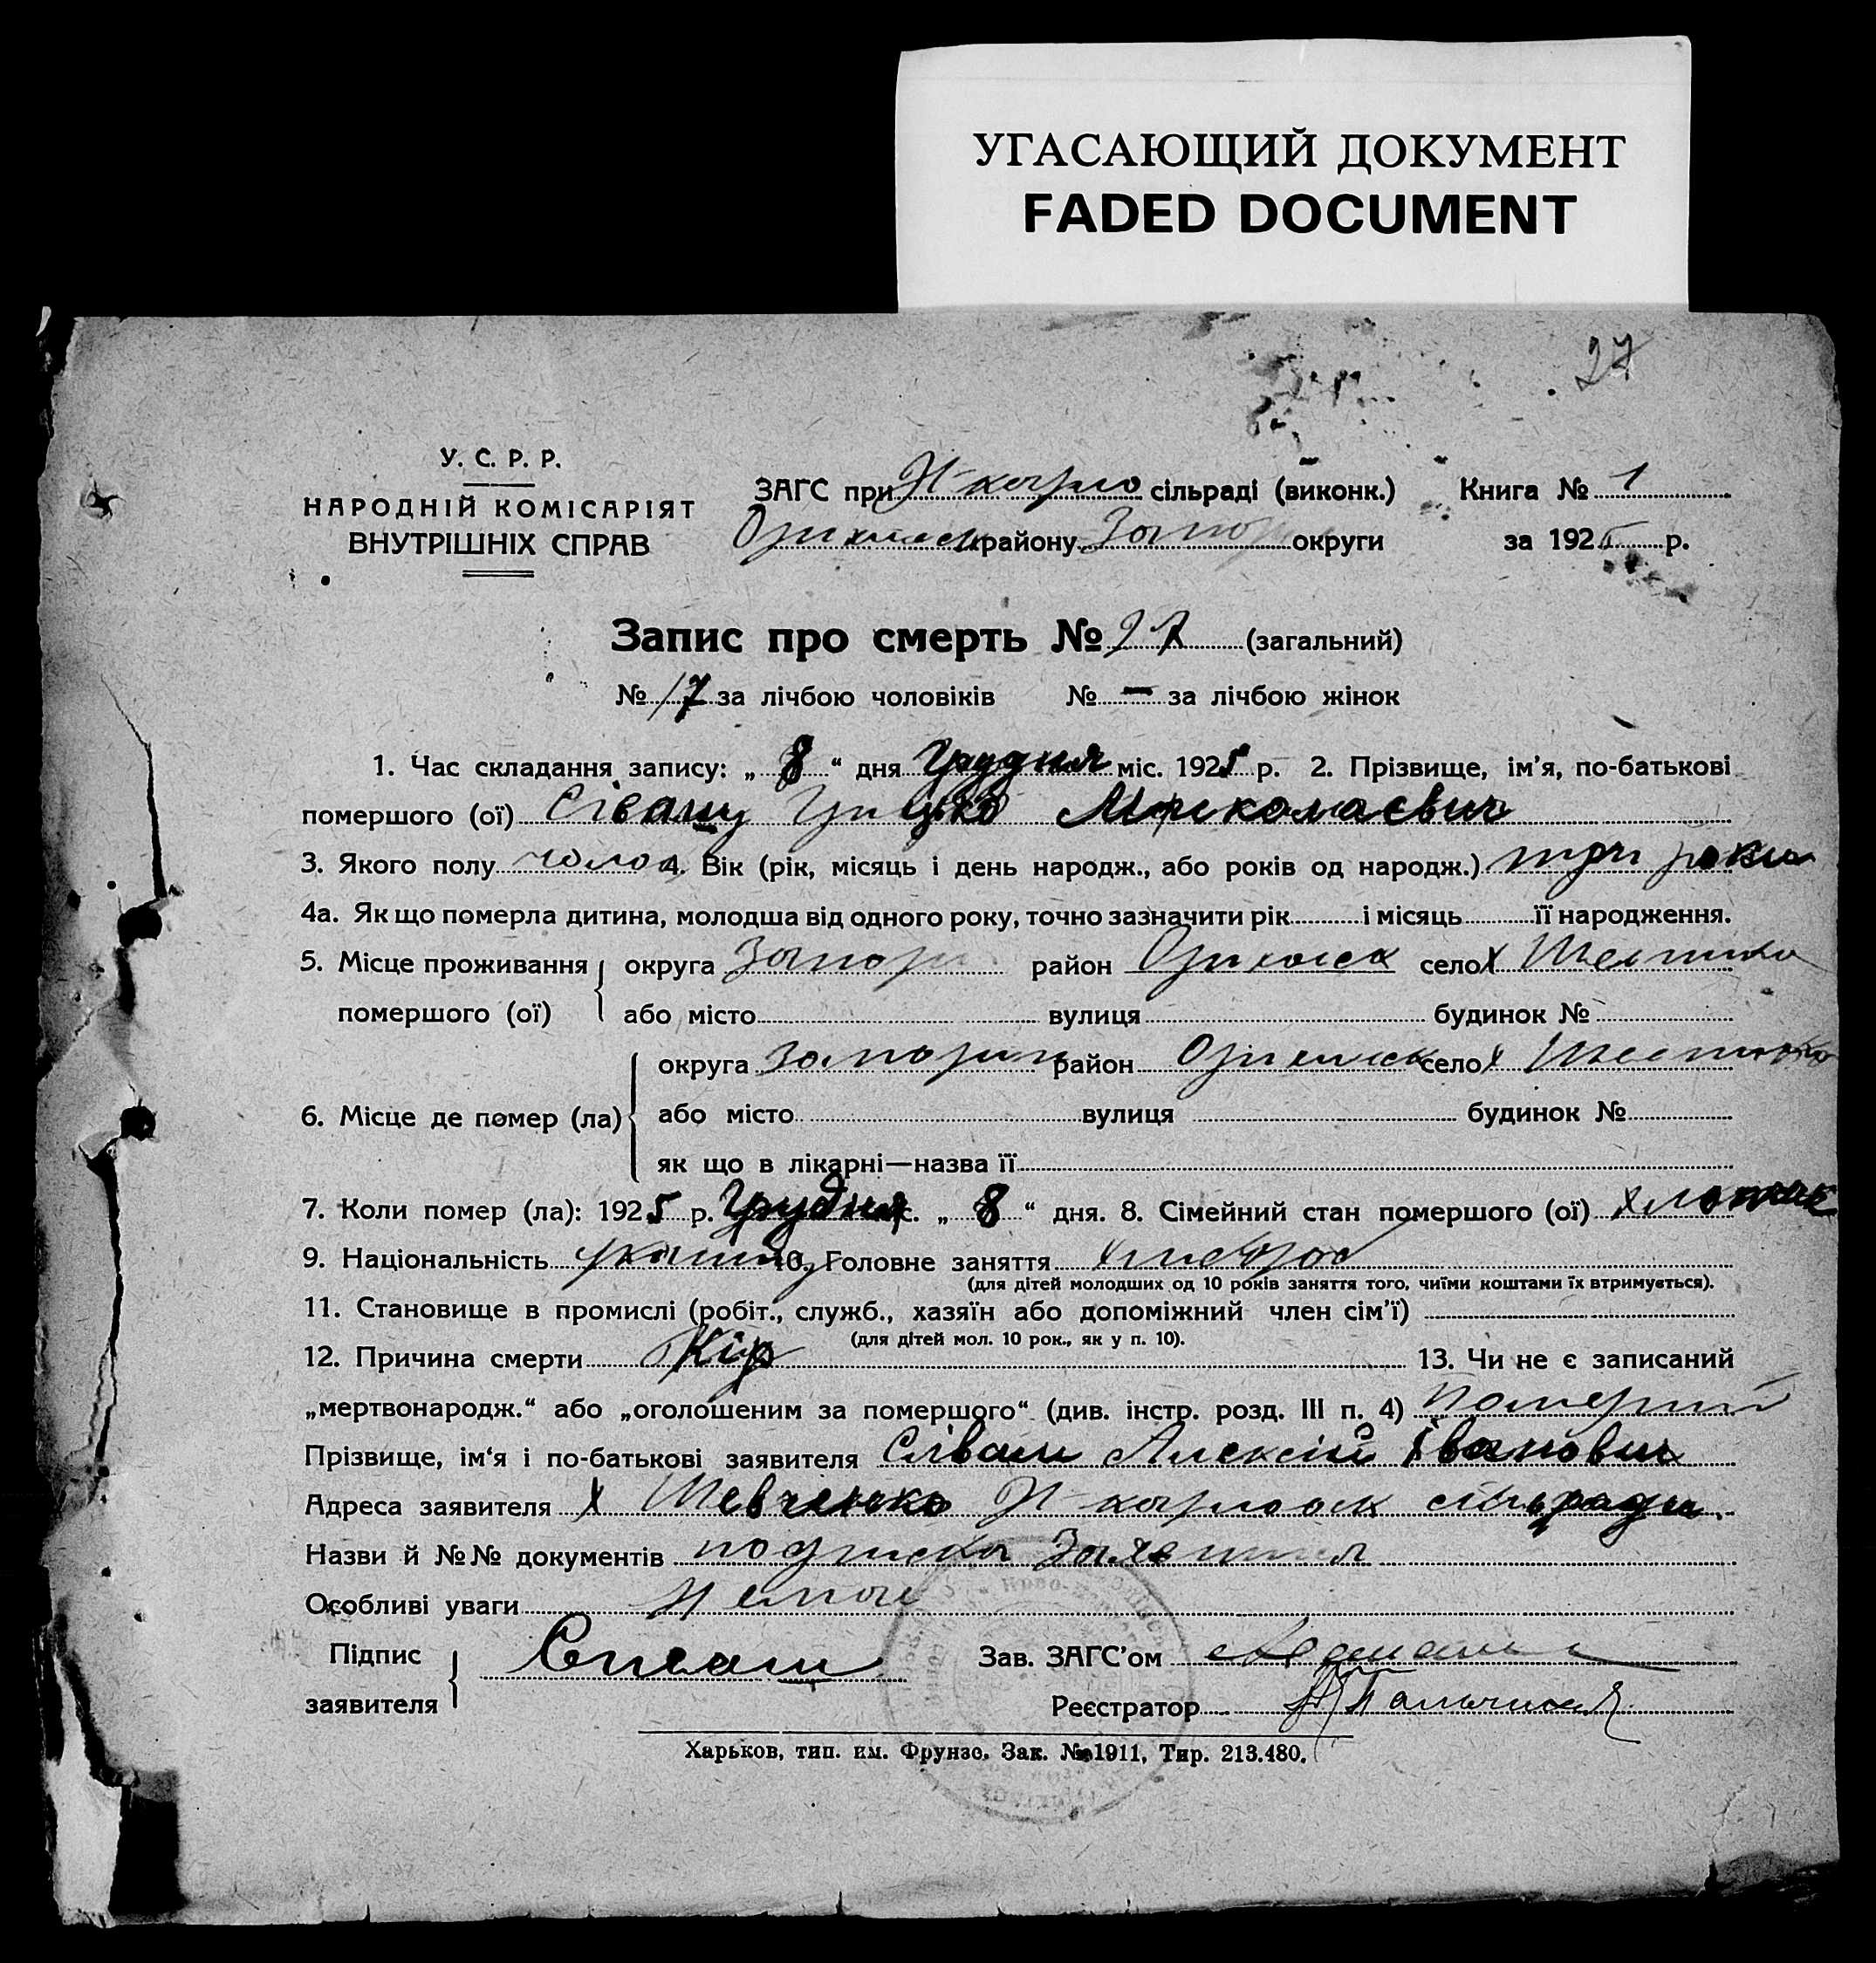 УГАСАЮЩИЙ ДОКУМЕНТ
FADED DOCUMENT
27
У. С. Р. Р.
НАРОДНІЙ КОМІСАРІЯТ
ВНУТРІШНІХ СПРАВ
ЗАГС при Н карло сільраді (виконк.) Книга № 1
району Запо округи за 1925 р.
Запис про смерть № 27 (загальний)
№ 17 за лічбою чоловіків № — за лічбою жінок
1. Час складання запису: „ 8 “ дня Грудня міс. 1925 р. 2. Прізвище, ім’я, по-батькові
помершого (ої) Сіваш Грицько Миколаєвич
3. Якого полу чолов 4. Вік (рік, місяць і день народж., або років од народж.) три роки
4а. Як що померла дитина, молодша від одного року, точно зазначити рік і місяць її народження.
5. Місце проживання округа Запорі район село х
помершого (ої) або місто вулиця будинок №
округа Запоріж район село х
6. Місце де помер (ла) або місто вулиця будинок №
як що в лікарні—назва її
7. Коли помер (ла): 1925 р. Грудня с. „ 8 “ дня. 8. Сімейний стан помершого (ої) хлопчик
9. Національність 10. Головне заняття хлібороб
(для дітей молодших од 10 років заняття того, чиїми коштами їх втримується).
11. Становище в промислі (робіт., служб., хазяїн або допоміжний член сім’ї)
(для дітей мол. 10 рок., як у п. 10).
12. Причина смерти Кір 13. Чи не є записаний
„мертвонародж.“ або „оголошеним за помершого“ (див. інстр. розд. III п. 4) померший
Прізвище, ім‘я і по-батькові заявителя Сіваш Алексій Іванович
Адреса заявителя х Шевченко Н карлок сільради
Назви й №№ документів подписка
Особливі уваги Немає
Підпис Сиваш Зав. ЗАГС’ом
заявителя Реєстратор
Харьков, тип. им. Фрунзе. Зак. № 1911, Тир. 213.480.